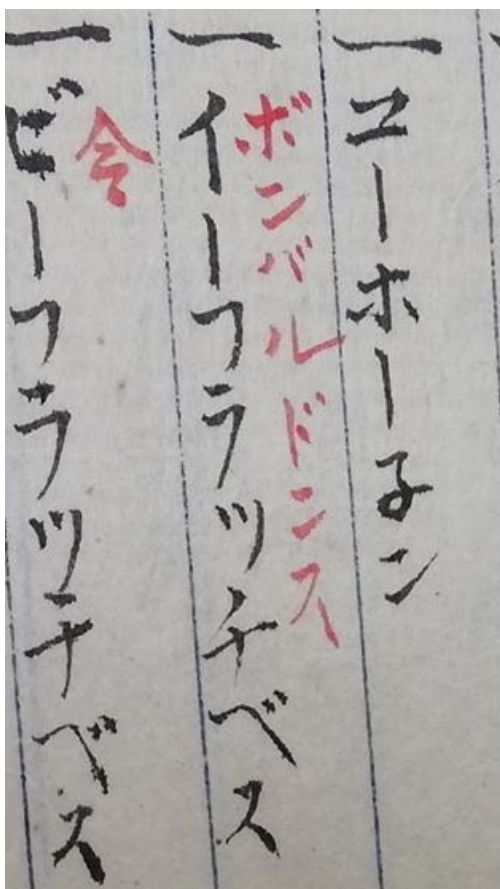 一ユーホー子ン
ボンバルドンス
一イーフラツチベス
仝
一ビーフラツチベス